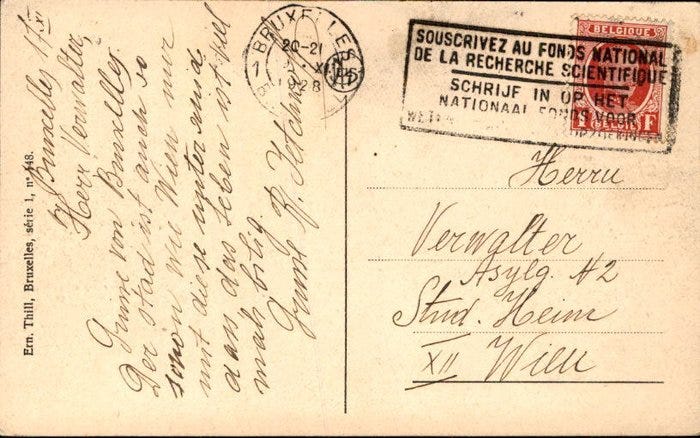 Bruxelles 17/XI
Herr Verwalter,
Grüsse von Bruxelles.
Der stad ist auch so
schön wie Wien nur
mit diese unter und
dass das leben ist viel
mals bilig.
Grüsse
Ern. Thill, Bruxelles, série 1, nº 148.
BRUXELLES
20-21
XI
1928
SOUSCRIVEZ AU FONDS NATIONAL
DE LA RECHERCHE SCIENTIFIQUE
SCHRIJF IN OP HET
NATIONAAL FONDS VOOR
BELGIQUE
1 F
Herrn
Verwalter
Asylg. 12
Stud. Heim
XII Wien